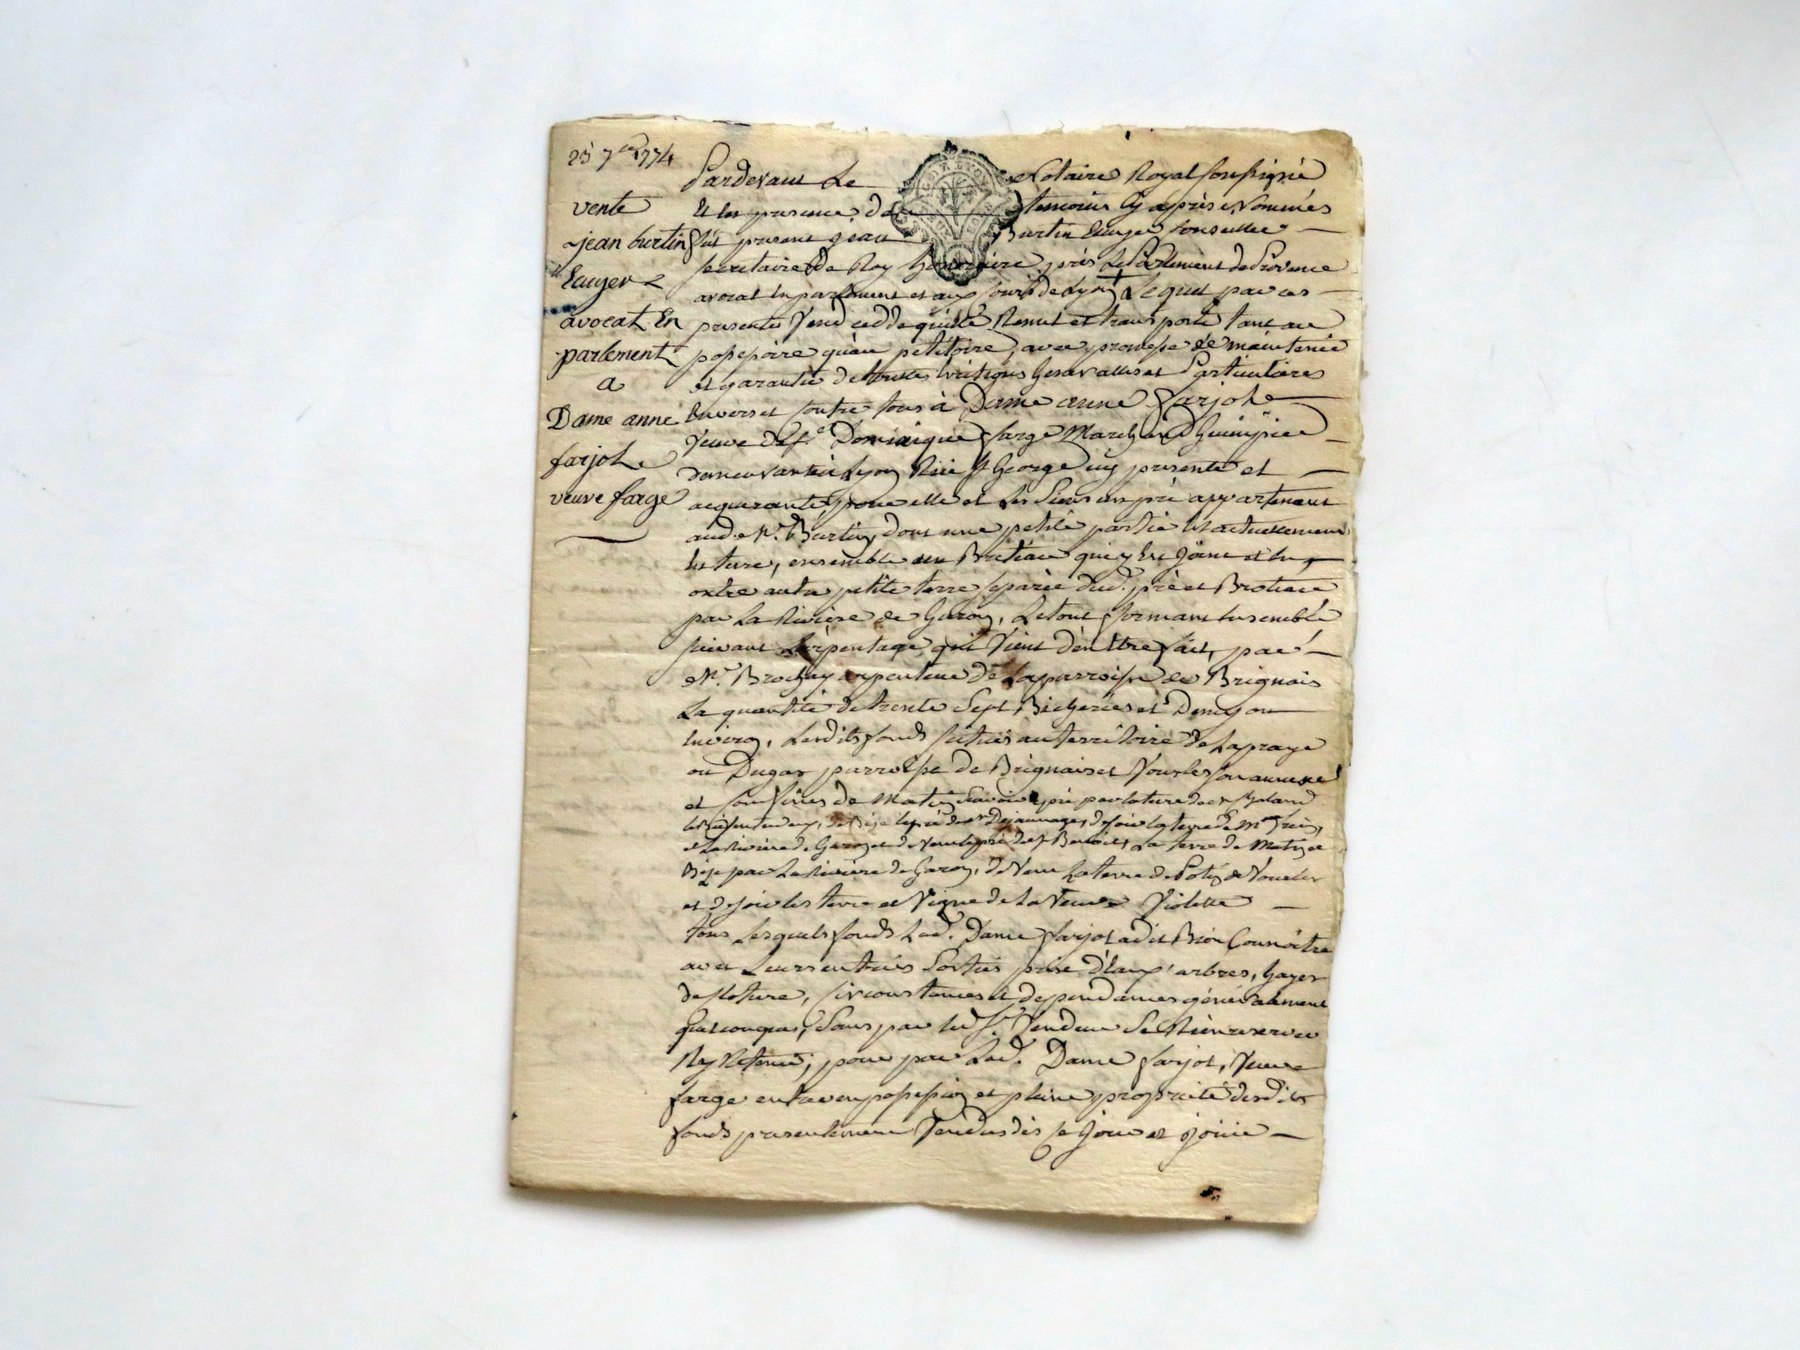 25 7bre 1774
vente
jean burtin
Ecuyer &
avocat En
parlement
a
Dame anne
farjot
veuve farge
Pardevant Le Notaire Royal soussigné
Et En presence des temoins Cy après Nommés
fut present Jean Burtin Ecuyer Conseiller
secretaire du Roy honoraire près Le Parlement de Provence
avocat En parlement et aux Cours de Lyon Lequel par ces
presentes Vend cedde quitte Remet et transporte tant au
possessoire qu'au petitoire, avec promesse de maintenir
et garantir de toutes Evictions Generalles et Particulieres
Envers et Contre tous à Dame anne Farjot
Veuve de Sr Dominique farge Marchand Guimpier
demeurante à Lyon Rüe St George icy presente et
acquerante pour elle et Les Siens un pré appartenant
aud. Sr. Burtin, dont une petite partie Est actuellement
En terre, ensemble un Broteau qui y Est Joint et En
outre autre petite terre separée dud. pré et Broteau
par La Riviere de Garon, Le tout formant Ensemble
suivant L'arpentage qui Vient d'en Etre fait, par
Sr. Brochay arpenteur de La parroisse de Brignais
La quantité de trente Sept Bicherées et Demy ou
Environ, Lesdits fonds situés au territoire de La praye
ou Dugas parroisse de Brignais et Vourles son annexe
et Confinés de Matin Savoir Le pré par la terre de
et La Riviere de Garon et de Vent Le pré de La terre de Matin et
Bize par La Riviere de Garon, de Vent La terre de de Vourles
et de soir Les terre et Vigne de La Veuve Violette
tous Lesquels fonds Lad. Dame Farjot a dit Bien Connoitre
avec Leurs entrées Sorties prise d'Eaux arbres, hayes
de cloture, Circonstances et dependances généralement
quelconques, Sans par led. Sr. Vendeur Se Rien reserver
Ny Retenir; pour par Lad. Dame farjot, Veuve
farge entrer en possession et pleine proprieté desdits
fonds presentement Vendus dès ce Jour et Joüir